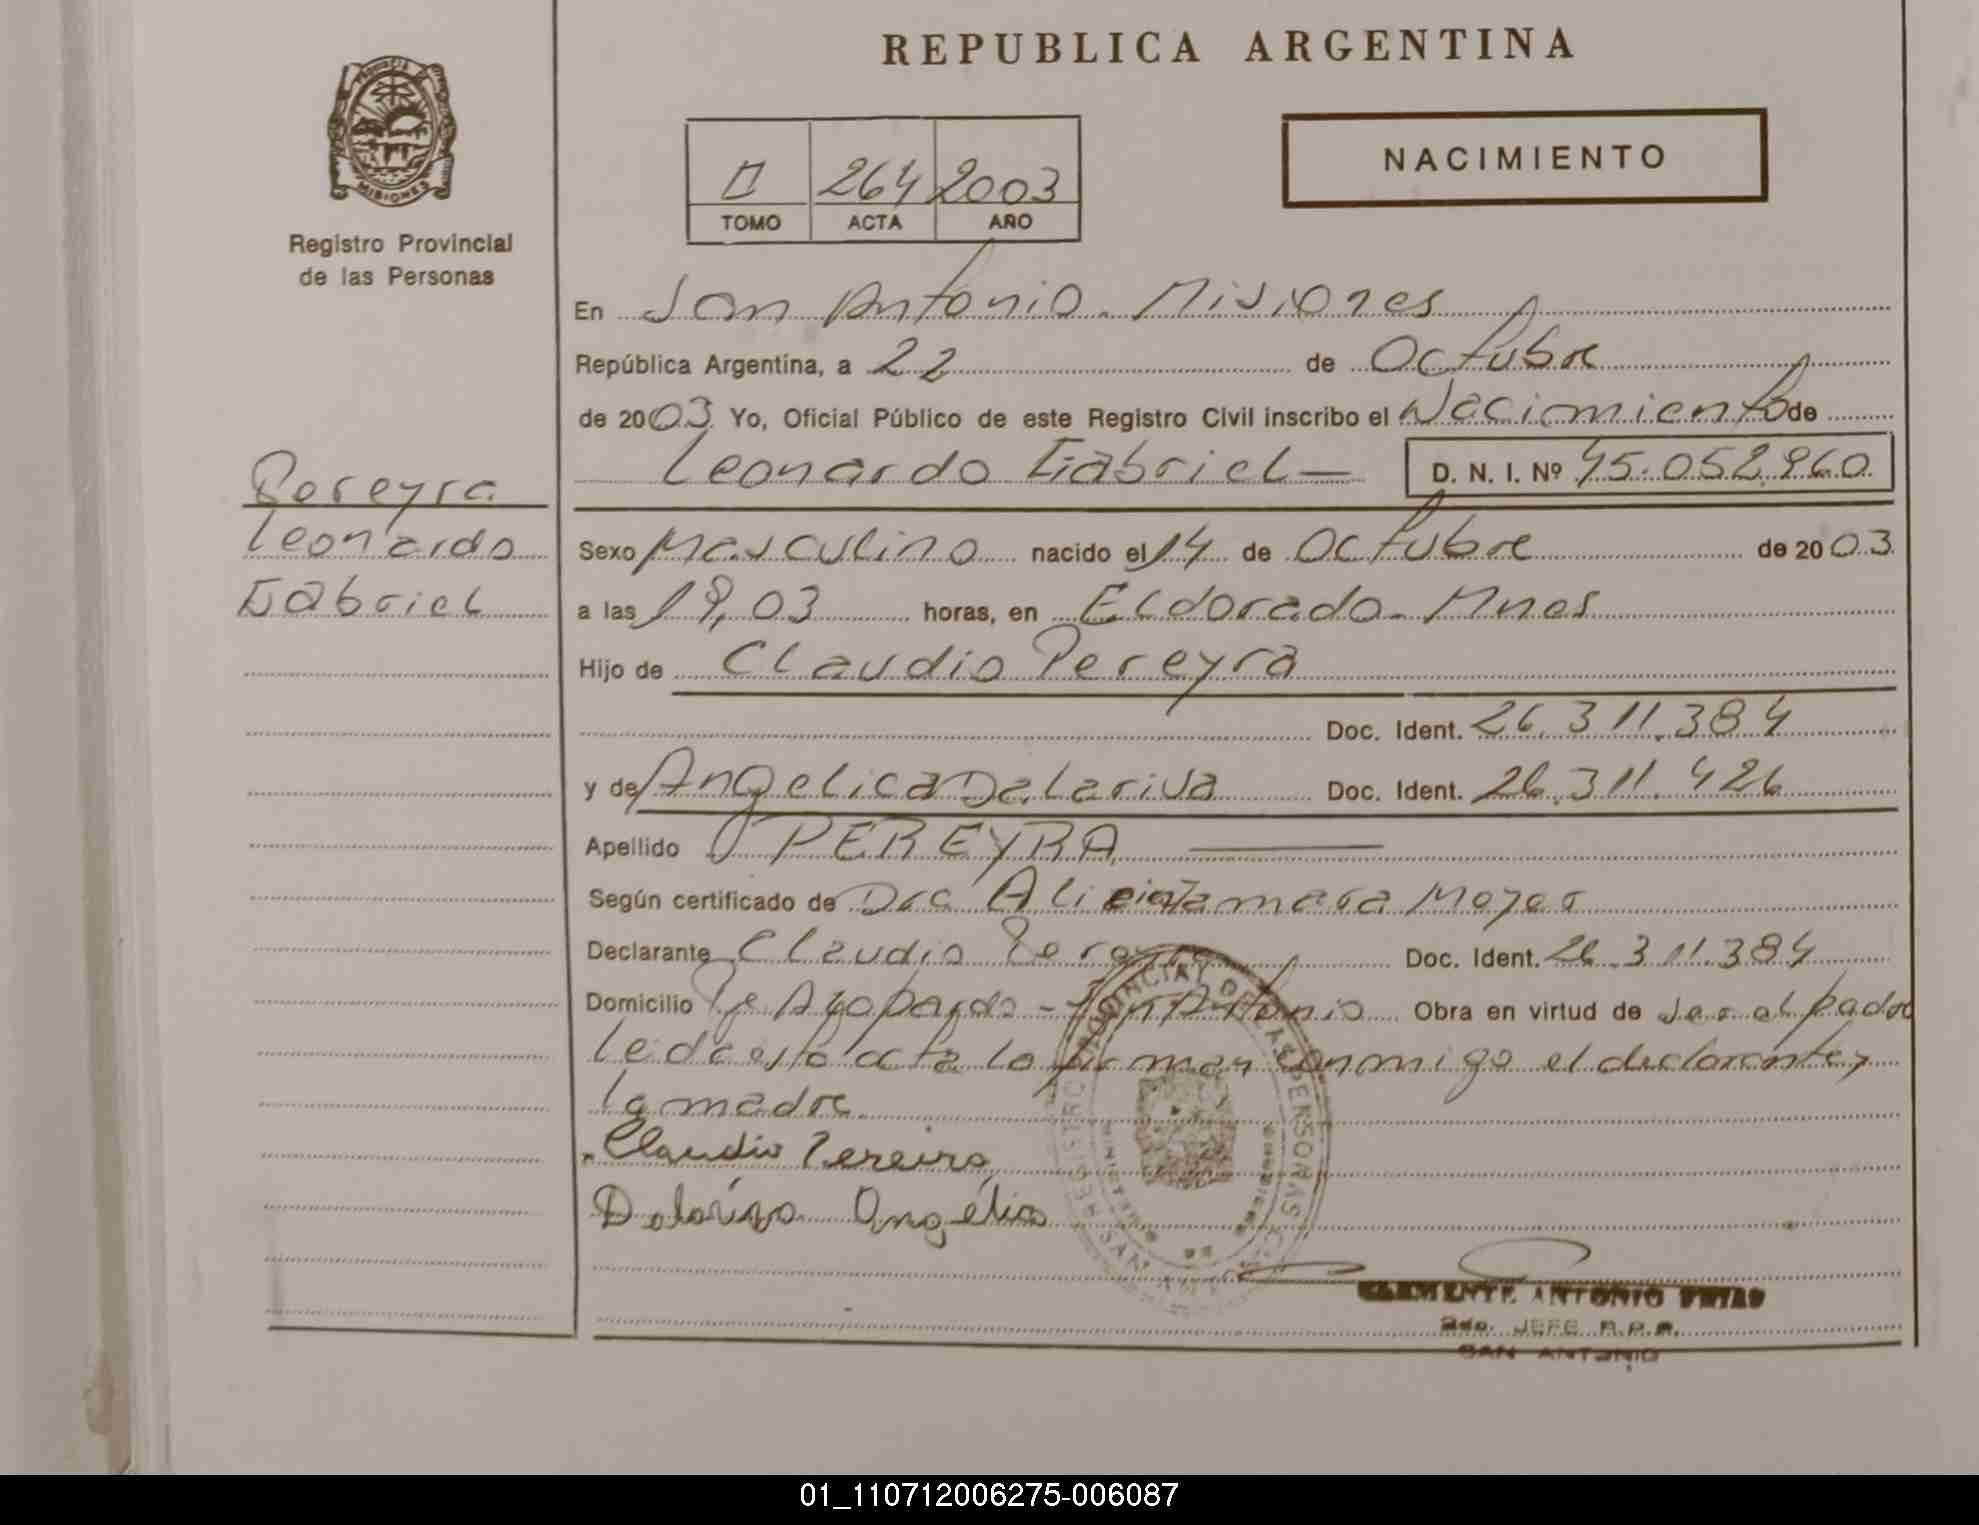 REPUBLICA ARGENTINA
PROVINCIA DE
MISIONES
Registro Provincial
de las Personas
II 264 2003
TOMO ACTA AÑO
NACIMIENTO
En San Antonio. Misiones
República Argentina, a 22 de Octubre
de 2003 Yo, Oficial Público de este Registro Civil inscribo el Nacimiento de
Leonardo Gabriel — D. N. I. Nº 45.052.960
Pereyra
Leonardo
Gabriel
Sexo Masculino nacido el 14 de Octubre de 2003
a las 19,03 horas, en Eldorado - Mnes
Hijo de Claudio Pereyra
Doc. Ident. 26.311.384
y de Angelica Dalariva Doc. Ident. 26.311.426
Apellido PEREYRA
Según certificado de Dra Alicia Tamara Moyer
Declarante Claudio Pereyra Doc. Ident. 26.311.384
Domicilio - San Antonio Obra en virtud de ser el padre
Leida esta acta la firman conmigo el declarante y
la madre
Claudio Pereira
Dalariva Angélica
REGISTRO PROVINCIAL DE LAS PERSONAS
CLEMENTE ANTONIO
2do. JEFE R.P.P.
SAN ANTONIO
01_110712006275-006087